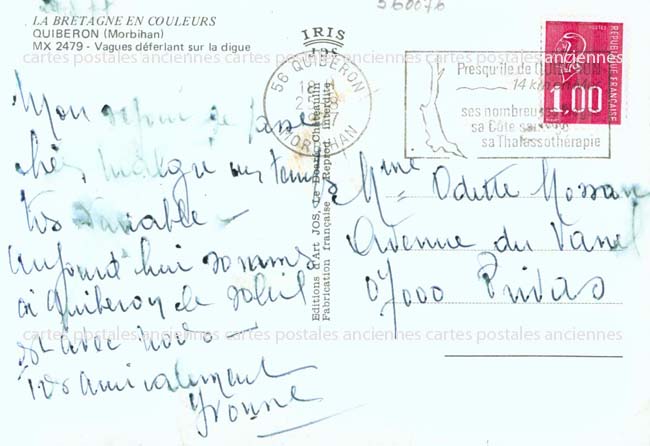 560076
LA BRETAGNE EN COULEURS
QUIBERON (Morbihan)
MX 2479 - Vagues déferlant sur la digue
IRIS
JOS
56 QUIBERON
18 H
25
MORBIHAN
Presqu'île de
14 km
ses nombreuses
sa Côte sauvage
sa Thalassothérapie
POSTES
REPUBLIQUE FRANÇAISE
1,00
Editions d'Art JOS, Le Doaré, Châteaulin
Fabrication française Reprod. interdite
Mon séjour se passe
bien, malgré un temps
très variable -
Aujourd'hui sommes
à Quiberon le soleil
est avec nous -
Très amicalement
Yvonne
Mme Odette Mossan
Avenue du Vanel
07000 Privas
cartes postales anciennes cartes postales anciennes cartes postales anciennes